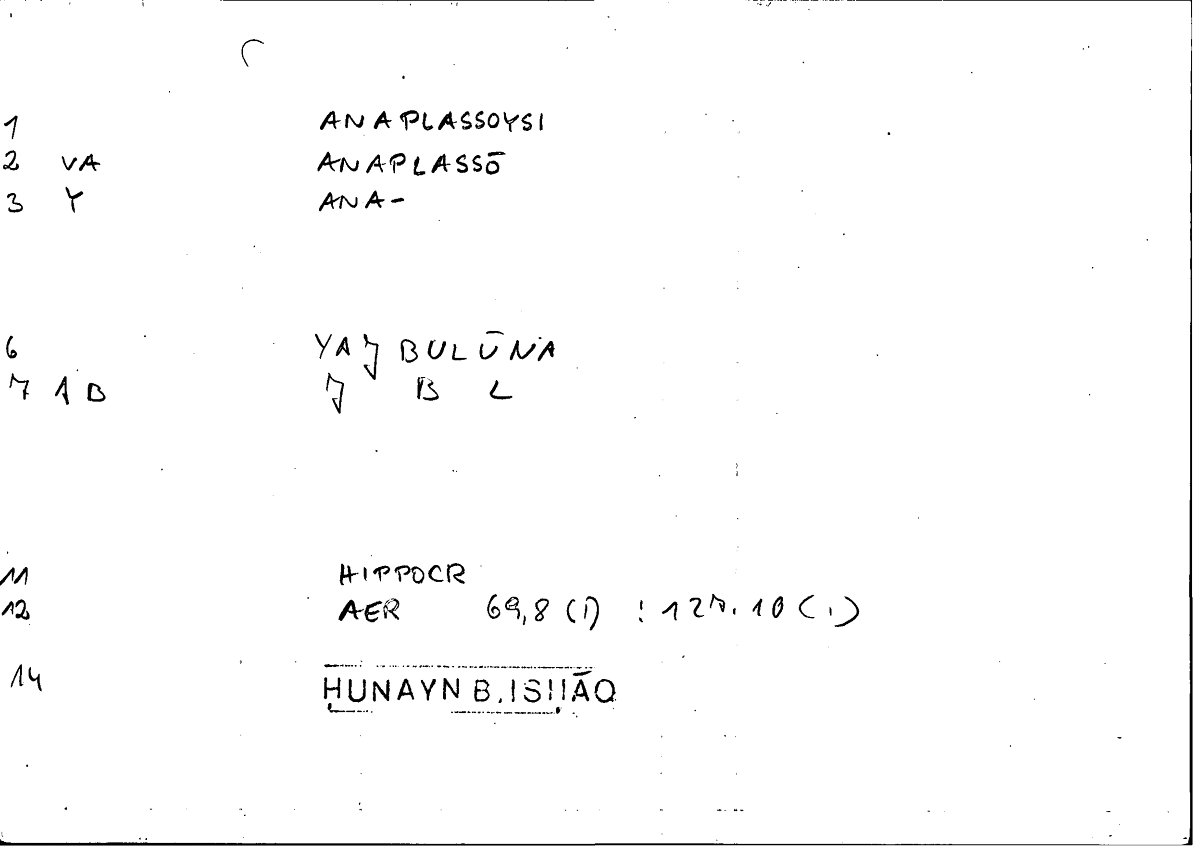 1 ANAPLASSOYSI
2 VA ANAPLASSŌ
3 Y ANA-
6 YAJBULŪNA
7 AB J B L
11 HIPPOCR
12 AER 69,8 (1) : 127.10 (1)
14 ḤUNAYN B.ISḤĀQ